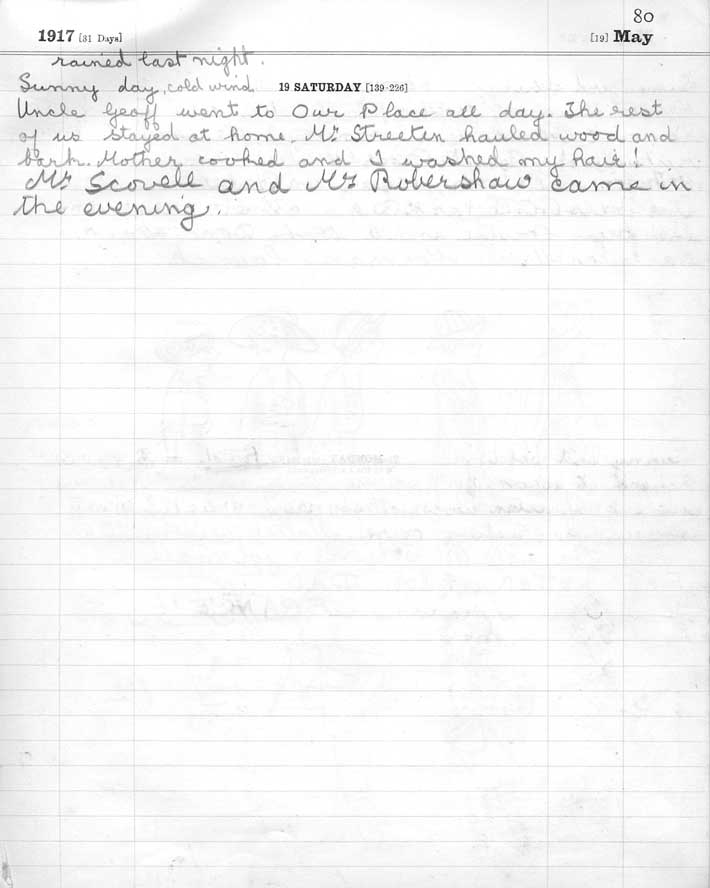 80
1917 [31 Days] [19] May
rained last night.
Sunny day, cold wind 19 SATURDAY [139-226]
Uncle Geoff went to Our Place all day. The rest
of us stayed at home. Mr Streeten hauled wood and
bark. Mother cooked and I washed my hair!
Mr Scovell and Mr Robershaw came in
the evening.